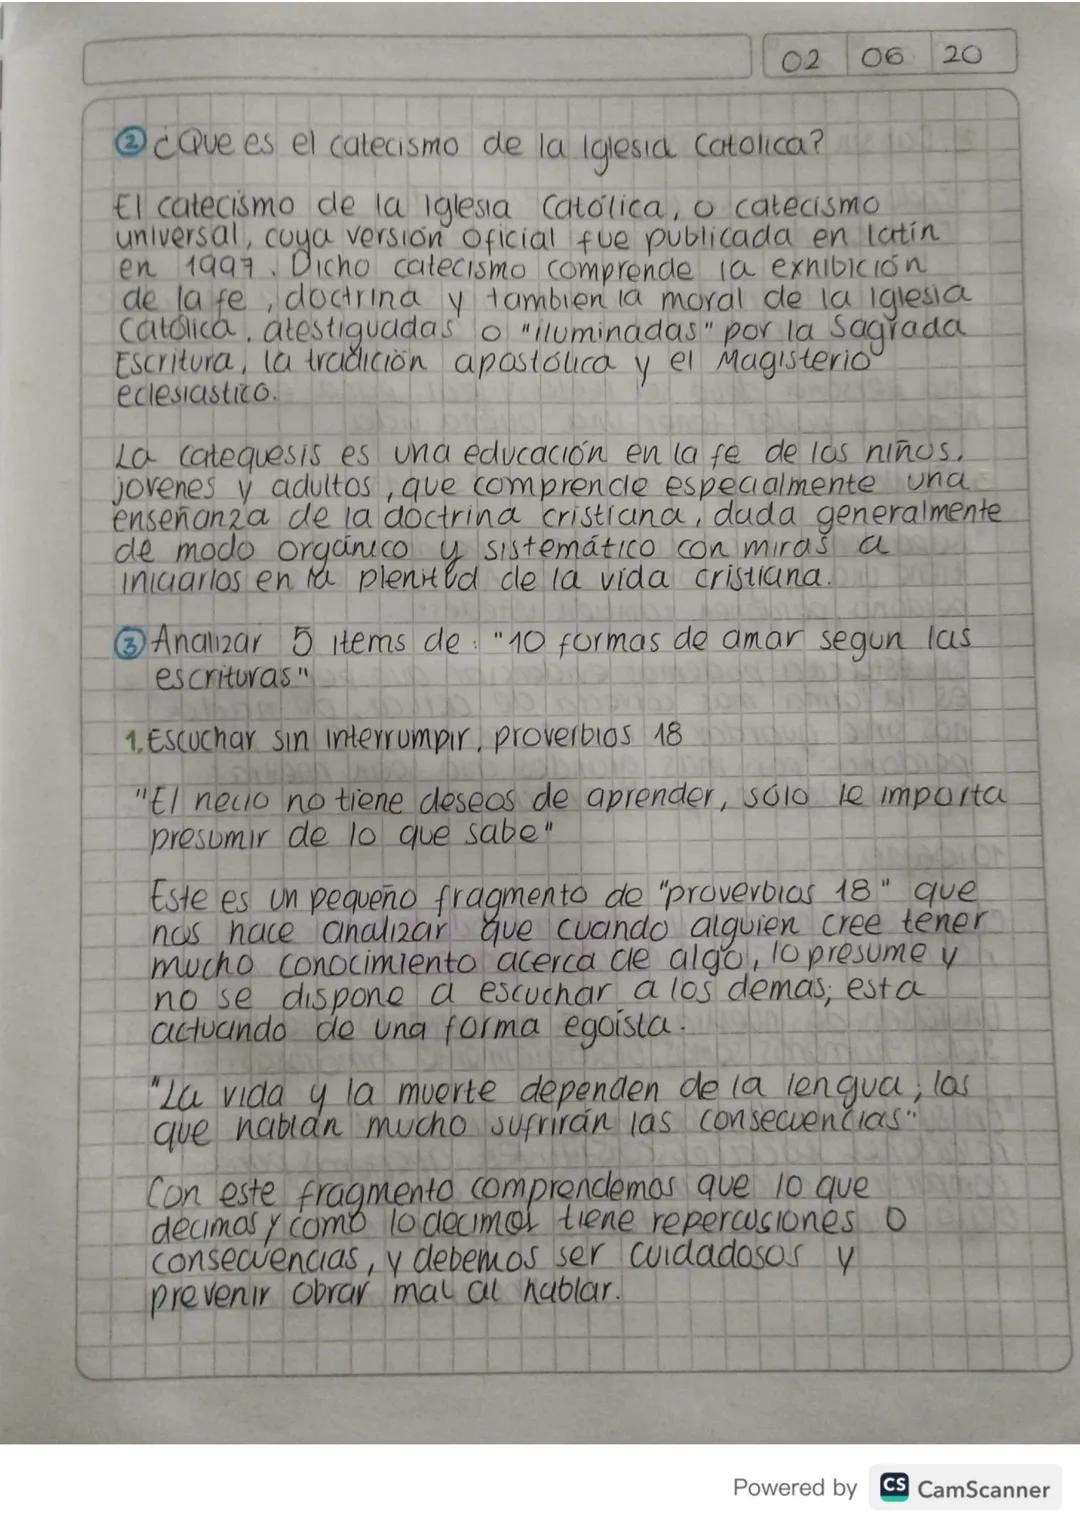 02 06 20
② ¿Que es el catecismo de la Iglesia Catolica?
El catecismo de la Iglesia Católica, o catecismo
universal, cuya versión oficial fue publicada en latín
en 1997. Dicho catecismo comprende la exhibición
de la fe, doctrina y tambien la moral de la Iglesia
Católica, atestiguadas o "iluminadas" por la Sagrada
Escritura, la tradición apostólica y el Magisterio
eclesiastico.
La catequesis es una educación en la fe de los niños,
jovenes y adultos, que comprende especialmente una
enseñanza de la doctrina cristiana, dada generalmente
de modo orgánico y sistemático con miras a
iniciarlos en la plenitud de la vida cristiana.
③ Analizar 5 items de: "10 formas de amar segun las
escrituras"
1. Escuchar sin interrumpir, proverbios 18
"El necio no tiene deseos de aprender, sólo le importa
presumir de lo que sabe"
Este es un pequeño fragmento de "proverbios 18" que
nos hace analizar que cuando alguien cree tener
mucho conocimiento acerca de algo, lo presume y
no se dispone a escuchar a los demas; esta
actuando de una forma egoísta.
"La vida y la muerte dependen de la lengua; los
que hablan mucho sufrirán las consecuencias"
Con este fragmento comprendemos que lo que
decimos y como lo decimos tiene repercusiones o
consecuencias, y debemos ser cuidadosos y
prevenir obrar mal al hablar.
Powered by CS CamScanner